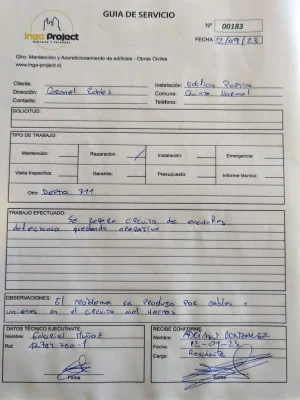 Inge Project
GUIA DE SERVICIO
Nº 00183
FECHA 12/09/23
Giro: Mantención y Acondicionamiento de edificios - Obras Civiles
www.inge-project.cl
Cliente:
Instalación: Edificio
Dirección: Coronel Robles
Comuna: Quinta Normal
Contacto:
Teléfono:
SOLICITUD:
TIPO DE TRABAJO:
Mantención:
Reparacion: /
Instalación:
Emergencia:
Visita Inspectiva:
Garantia:
Presupuesto:
Informe técnico:
Otro: Depto 711
TRABAJO EFECTUADO:
Se repara circuito de enchufes
defectuoso quedando operativo
OBSERVACIONES: El problema se produjo por cables
uniones en el circuito mal hechos
DATOS TÉCNICO EJECUTANTE:
Nombre: Gabriel Muñoz
Rut:
Firma
RECIBE CONFORME:
Nombre: Gonzalez
Fecha: 12-09-23
Cargo: Residente
Firma